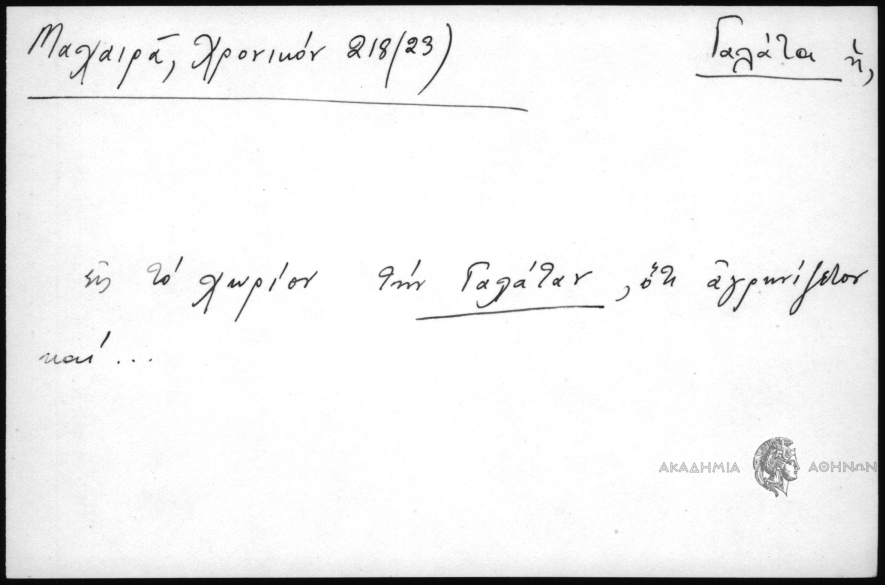 Μαχαιρᾶ, Χρονικόν 218/23)
Γαλάτα ἡ,
εἰς τό χωρίον τήν Γαλάταν, ὅτι
καί ...
ΑΚΑΔΗΜΙΑ ΑΘΗΝΩΝ